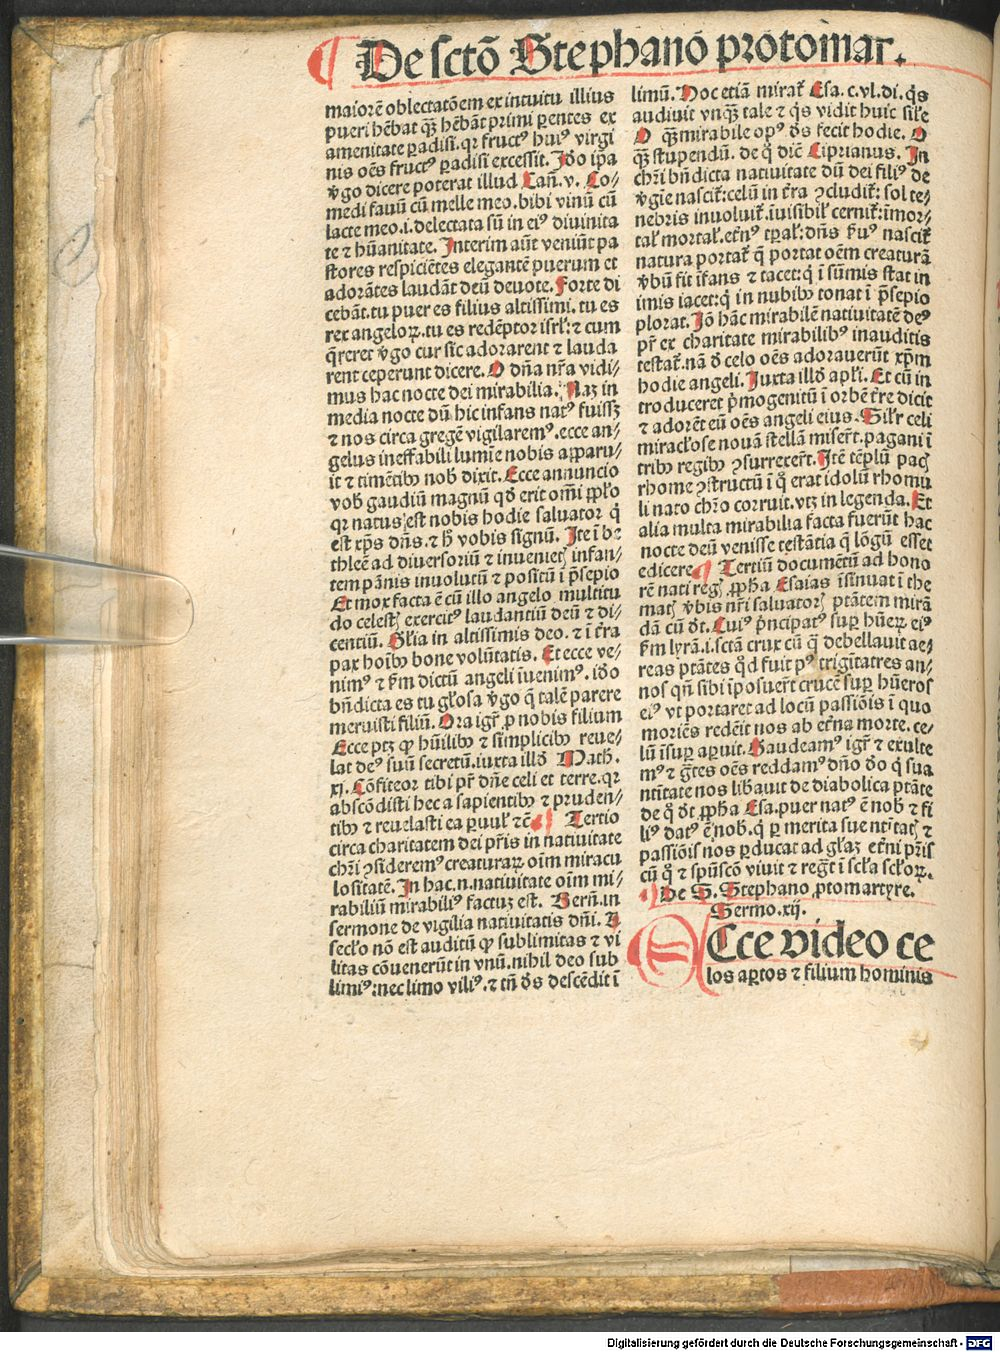 ¶ De sctō Stephanō protomar.
maiorē oblectatōem ex intuitu illius
pueri hēbat qꝫ̄ hēbāt primi ꝑentes ex
amenitate ꝑadisi. qr fructꝰ huiꝰ virgi
nis oēs fructꝰ ꝑadisi excessit. Iđo ip̄a
v̊go dicere poterat illud Cañ. v. Co⸗
medi fauū cū melle meo. bibi vinū cū
lacte meo .i. delectata sū in eiꝰ diuinita
te ⁊ hūanitate. Interim aūt veniūt pa
stores respiciētes elegantē puerum et
adorātes laudāt deū deuote. Forte di
cebāt. tu puer es filius altissimi. tu es
rex angeloꝝ. tu es redēptor isrł: ⁊ cum
q̄reret v̊go cur sic adorarent ⁊ lauda
rent ceperunt dicere. O dn̄a nr̄a vidi⸗
mus hac nocte dei mirabilia. Naꝫ in
media nocte dū hic infans natꝰ fuissꝫ
⁊ nos circa gregē vigilaremꝰ. ecce an⸗
gelus ineffabili lumīe nobis apparu⸗
it ⁊ timētibꝰ nob̄ dixit. Ecce annuncio
vob̄ gaudiū magnū qđ erit om̄i ppło
qr natus est nobis hodie saluator q̇
est xp̄s dn̄s. ⁊ hͦ vobis signū. Ite ī be
thleē ad diuersoriū ⁊ inuenietꝭ infan⸗
tem pānis inuolutū ⁊ positū ī p̄sepio
Et mox facta ē cū illo angelo multitu
do celestꝭ exercitꝰ laudantiū deū ⁊ di⸗
centiū. Głia in altissimis deo. ⁊ ī t̄ra
pax hoībꝰ bone volūtatis. Et ecce ve⸗
nimꝰ ⁊ ẜm dictū angeli īuenimꝰ. iđo
bn̄dicta es tu głosa v̊go q̄ talē parere
meruisti filiū. Ora igr̄ ꝓ nobis filium
Ecce ptꝫ ꝙ hūilibꝰ ⁊ simplicibꝰ reue⸗
lat deꝰ suū secretū. iuxta illđ Math.
xj. Cōfiteor tibi pr̄ dn̄e celi et terre. qr
abscōdisti hec a sapientibꝰ ⁊ pruden⸗
tibꝰ ⁊ reuelasti ea ꝑuuł ⁊c̄ ¶ Tertio
circa charitatem dei pr̄is in natiuitate
chr̄i ꝯsideremꝰ creaturaꝝ oīm miracu
lositatē. In hac .n. natiuitate oīm mi⸗
rabiliū mirabiliꝰ factuꝫ est. Berñ. in
sermone de vigilia natiuitatis dn̄i. A
secło nō est auditū ꝙ sublimitas ⁊ vi
litas cōuenerūt in vnū. nihil deo sub
limiꝰ: nec limo viliꝰ. ⁊ tn̄ đs descēdit ī
limū. Hoc etiā mirat̄ Esa. c. vl. di. q̇s
audiuit vnqꝫ̄ tale ⁊ q̇s vidit huic siłe
O qꝫ̄ mirabile opꝰ đs fecit hodie. O
qꝫ̄ stupendū. de qͦ dič Ciprianus. In
chr̄i bn̄dicta natiuitate dū dei filiꝰ de
v̊gīe nascit̄: celū in t̄ra ꝯcludit̄: sol te⸗
nebris inuoluit̄. īuisibił cernit̄: īmor⸗
tał mortał. et̄nꝰ tꝑał: dn̄s ẜuꝰ nascit̄
natura portat̄ q̇ portat oēm creaturā
v̊bū fit īfans ⁊ tacet: q̇ ī sūmis stat in
imis iacet: q̇ in nubibꝰ tonat ī p̄sepio
plorat. Iō hāc mirabilē natiuitatē deꝰ
pr̄ ex charitate mirabilibꝰ inauditis
testat̄. nā đ celo oēs adorauerūt xp̄m
hodie angeli. Iuxta illđ apłi. Et cū in
troduceret p̄mogenitū ī orbē t̄re dicit
⁊ adorēt eū oēs angeli eius. Siłr celi
miracłose nouā stellā miser̄t. pagani ī
tribꝰ regibꝰ ꝯsurrexer̄t. Itē tēplū pacꝭ
rhome ꝯstructū ī qͦ erat idolū rhomu
li nato chr̄o corruit. vtꝫ in legenda. Et
alia multa mirabilia facta fuerūt hac
nocte deū venisse testātia q̄ lōgū esset
edicere ¶ Tertiū documētū ad hono
rē nati regꝭ ꝓpħa Esaias īsinuat ī the
matꝭ v̊bis nr̄i saluatorꝭ ptātem mirā
dā cū đt. Cuiꝰ p̄ncipatꝰ suꝑ hūeꝝ eiꝰ
ẜm lyrā .i. sctā crux cū q̄ debellauit ae⸗
reas ptātes qđ fuit pꝰ trigītatres an⸗
nos qñ sibi īposuer̄t crucē suꝑ hūeros
eiꝰ vt portaret ad locū passiōis ī quo
moriēs redēit nos ab et̄na morte. ce⸗
lū īsuꝑ aꝑuit. Gaudeamꝰ igr̄ ⁊ exulte
mꝰ ⁊ gr̄tes oēs reddamꝰ dn̄o đo q̇ sua
natīuitate nos liƀauit de diabolica ptāte
de qͦ đt ꝓpħa Esa. puer natꝰ ē nob̄ ⁊ fi
liꝰ datꝰ ē nob̄. q̇ ꝑ merita sue nt̄itatꝭ ⁊
passiōis nos ꝑducat ad głaꝫ et̄ni pr̄is
cū qͦ ⁊ spūscō viuit ⁊ reg̅t ī scła scłoꝝ.
¶ De S. Stephano ꝓtomartyre.
Sermo .xij.
ECce video ce
los aꝑtos ⁊ filium hominis
Digitalisierung gefördert durch die Deutsche Forschungsgemeinschaft - DFG